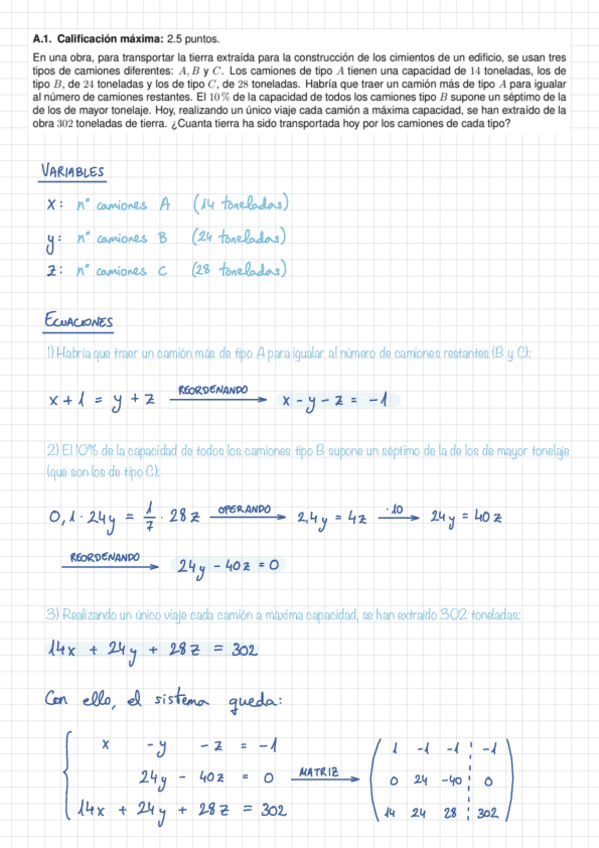 A.1. Calificación máxima: 2.5 puntos.
En una obra, para transportar la tierra extraída para la construcción de los cimientos de un edificio, se usan tres
tipos de camiones diferentes: A, B y C. Los camiones de tipo A tienen una capacidad de 14 toneladas, los de
tipo B, de 24 toneladas y los de tipo C, de 28 toneladas. Habría que traer un camión más de tipo A para igualar
al número de camiones restantes. El 10 % de la capacidad de todos los camiones tipo B supone un séptimo de la
de los de mayor tonelaje. Hoy, realizando un único viaje cada camión a máxima capacidad, se han extraído de la
obra 302 toneladas de tierra. ¿Cuanta tierra ha sido transportada hoy por los camiones de cada tipo?
VARIABLES
x: nº camiones A (14 toneladas)
y: nº camiones B (24 toneladas)
z: nº camiones C (28 toneladas)
ECUACIONES
1) Habría que traer un camión más de tipo A para igualar al número de camiones restantes (B y C):
x + 1 = y + z REORDENANDO x - y - z = -1
2) El 10% de la capacidad de todos los camiones tipo B supone un séptimo de la de los de mayor tonelaje
(que son los de tipo C):
0,1 · 24y = 1/7 · 28z OPERANDO 2,4y = 4z ·10 24y = 40z
REORDENANDO 24y - 40z = 0
3) Realizando un único viaje cada camión a máxima capacidad, se han extraído 302 toneladas:
14x + 24y + 28z = 302
Con ello, el sistema queda:
x - y - z = -1 1 -1 -1 -1
24y - 40z = 0 MATRIZ 0 24 -40 0
14x + 24y + 28z = 302 14 24 28 302